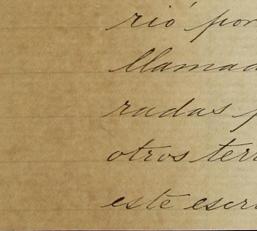 rió por
llamad
radas p
otros ter
este escri